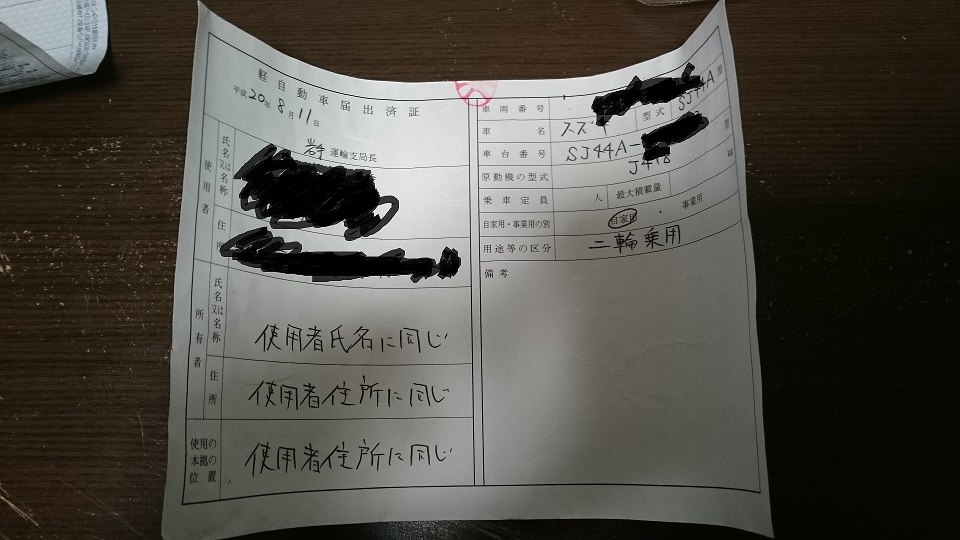 軽自動車届出済証
平成20年8月11日
岩手運輸支局長
使用者
氏名又は名称
住所
所有者
氏名又は名称
使用者氏名に同じ
住所
使用者住所に同じ
使用の本拠の位置
使用者住所に同じ
車両番号
車名 スズキ 型式 SJ44A 型
車台番号 SJ44A-
原動機の型式 型
乗車定員 人 最大積載量 kg
自家用・事業用の別 自家用 ・ 事業用
用途等の区分 二輪乗用
備考